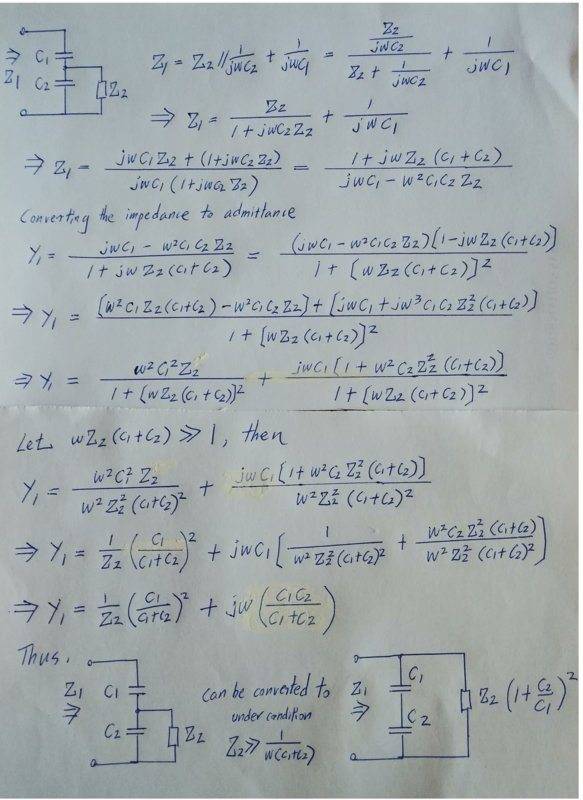 C₁
⇒
Z₁
C₂
Z₂
Z₁ = Z₂ // 1/(jωC₂) + 1/(jωC₁) = (Z₂/(jωC₂))/(Z₂ + 1/(jωC₂)) + 1/(jωC₁)
⇒ Z₁ = Z₂/(1 + jωC₂Z₂) + 1/(jωC₁)
⇒ Z₁ = (jωC₁Z₂ + (1+jωC₂Z₂))/(jωC₁(1+jωC₂Z₂)) = (1 + jωZ₂(C₁+C₂))/(jωC₁ - ω²C₁C₂Z₂)
Converting the impedance to admittance
Y₁ = (jωC₁ - ω²C₁C₂Z₂)/(1 + jωZ₂(C₁+C₂)) = ((jωC₁ - ω²C₁C₂Z₂)[1-jωZ₂(C₁+C₂)])/(1 + [ωZ₂(C₁+C₂)]²)
⇒ Y₁ = ([ω²C₁Z₂(C₁+C₂) - ω²C₁C₂Z₂] + [jωC₁ + jω³C₁C₂Z₂²(C₁+C₂)])/(1 + [ωZ₂(C₁+C₂)]²)
⇒ Y₁ = ω²C₁²Z₂/(1 + [ωZ₂(C₁+C₂)]²) + jωC₁[1 + ω²C₂Z₂²(C₁+C₂)]/(1 + [ωZ₂(C₁+C₂)]²)
Let ωZ₂(C₁+C₂) ≫ 1, then
Y₁ = ω²C₁²Z₂/(ω²Z₂²(C₁+C₂)²) + jωC₁[1 + ω²C₂Z₂²(C₁+C₂)]/(ω²Z₂²(C₁+C₂)²)
⇒ Y₁ = 1/Z₂ (C₁/(C₁+C₂))² + jωC₁[1/(ω²Z₂²(C₁+C₂)²) + ω²C₂Z₂²(C₁+C₂)/(ω²Z₂²(C₁+C₂)²)]
⇒ Y₁ = 1/Z₂ (C₁/(C₁+C₂))² + jω(C₁C₂/(C₁+C₂))
Thus,
Z₁ C₁
⇒
C₂ Z₂
can be converted to
under condition
Z₂ ≫ 1/(ω(C₁+C₂))
Z₁ C₁
⇒
C₂
Z₂(1+C₂/C₁)²